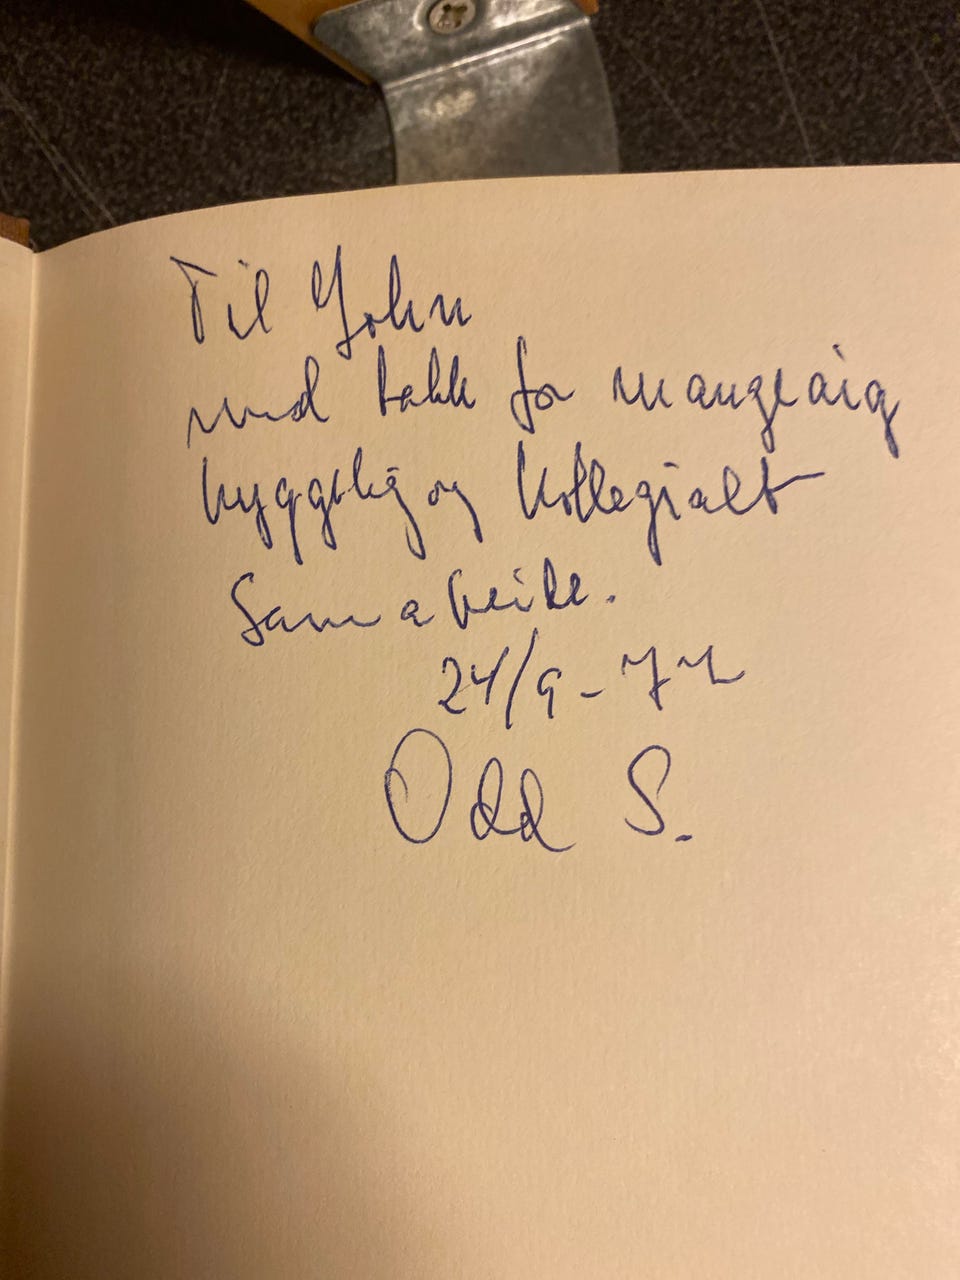 Til John
med takk for mangeårig
hyggelig og kollegialt
samarbeide.
24/9-72
Odd S.